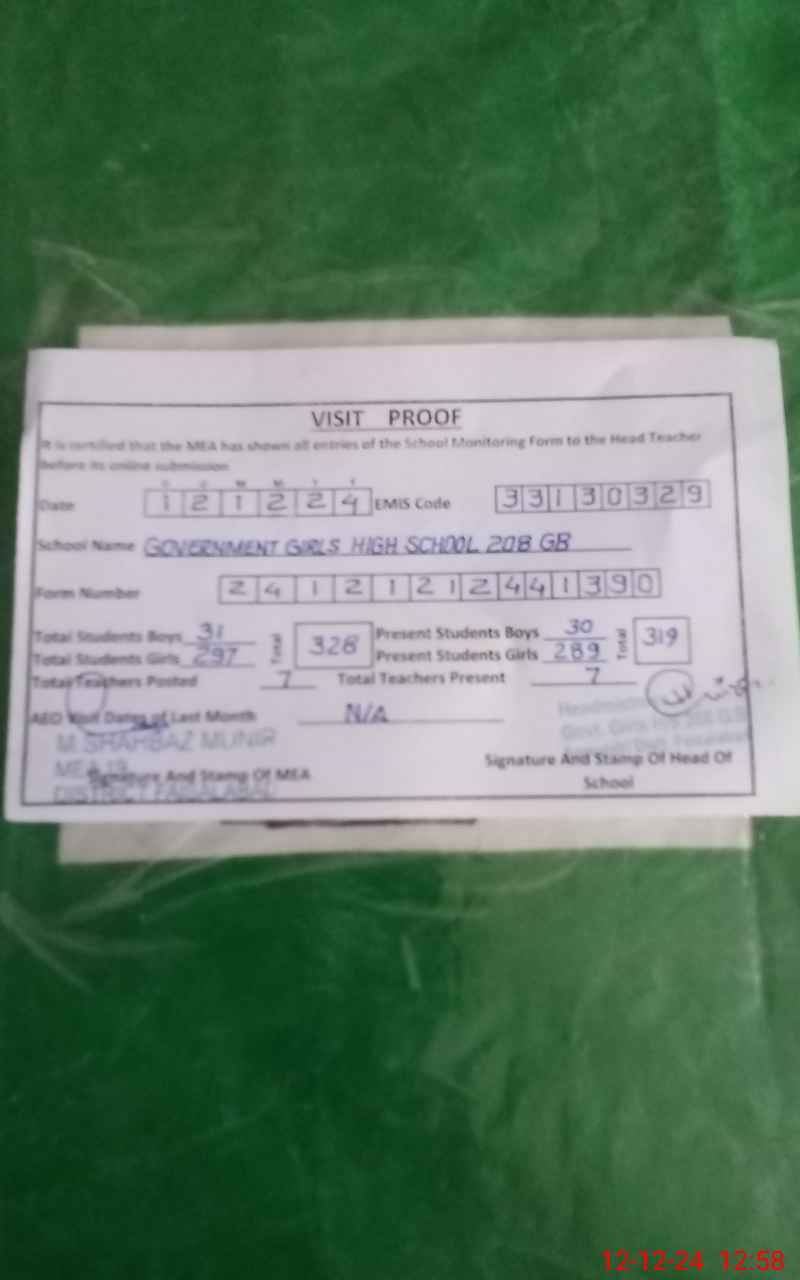 VISIT PROOF
It is certified that the MEA has shown all entries of the School Monitoring Form to the Head Teacher
before its online submission
D D M M Y Y
Date 1 2 1 2 2 4 EMIS Code 3 3 1 3 0 3 2 9
School Name GOVERNMENT GIRLS HIGH SCHOOL 208 GB
Form Number 2 4 1 2 1 2 1 2 4 4 1 3 9 0
Total Students Boys 31 Total 328 Present Students Boys 30 Total 319
Total Students Girls 297 Present Students Girls 289
Total Teachers Posted 7 Total Teachers Present 7
AEO Visit Dates of Last Month N/A
Headmistress
Govt. Girls
M. SHAHBAZ MUNIR
MEA 19
Signature And Stamp Of MEA
DISTRICT FAISALABAD
Signature And Stamp Of Head Of
School
12-12-24 12:58